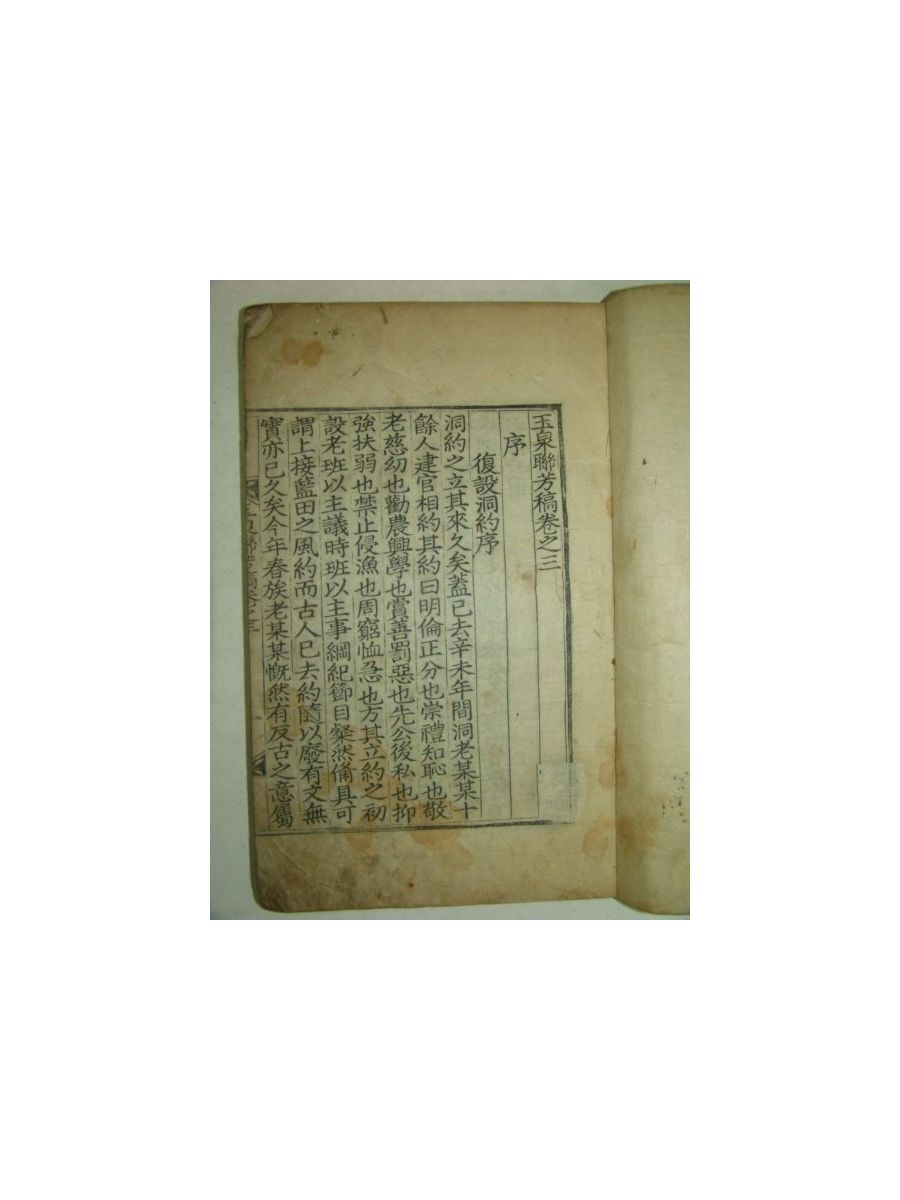 玉泉聯芳稿卷之三
序
復設洞約序
洞約之立其來久矣蓋已去辛未年間洞老某某十
餘人建官相約其約曰明倫正分也崇禮知恥也敬
老慈幼也勸農興學也賞善罰惡也先公後私也抑
強扶弱也禁止侵漁也周窮恤急也方其立約之初
設老班以主議時班以主事綱紀節目粲然俻具可
謂上接藍田之風約而古人已去約隨以廢有文無
實亦已久矣今年春族老某某慨然有反古之意屬